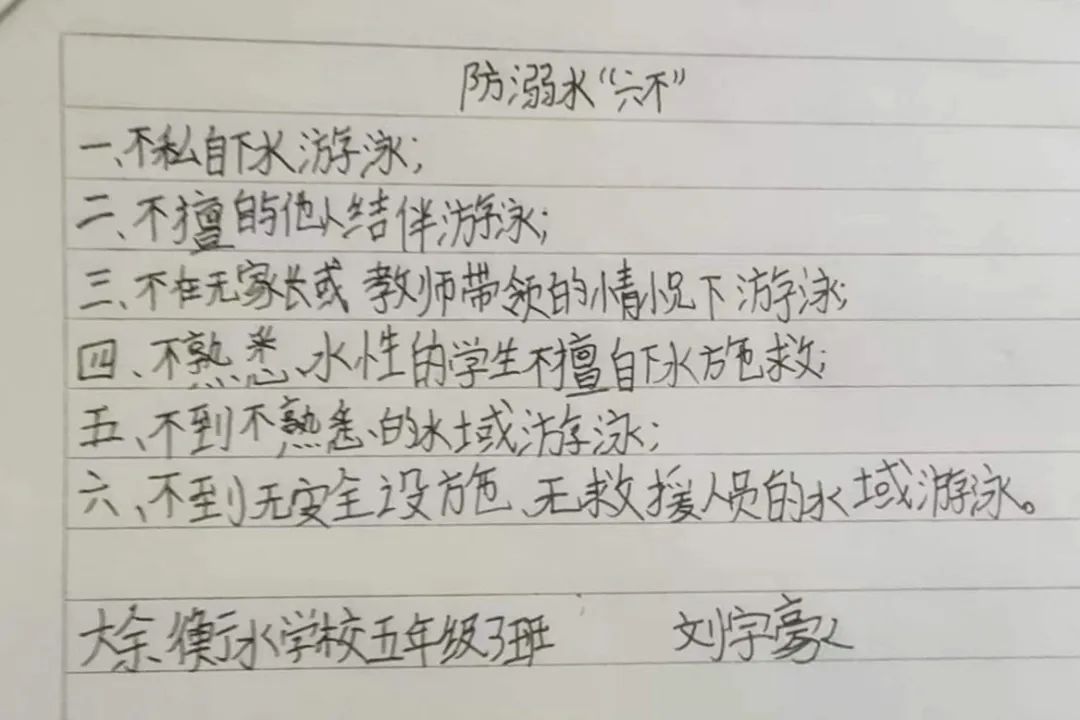 防溺水“六不”
一、不私自下水游泳；
二、不擅自与他人结伴游泳；
三、不在无家长或教师带领的情况下游泳；
四、不熟悉水性的学生不擅自下水施救；
五、不到不熟悉的水域游泳；
六、不到无安全设施、无救援人员的水域游泳。
大余衡水学校五年级3班 刘宇豪